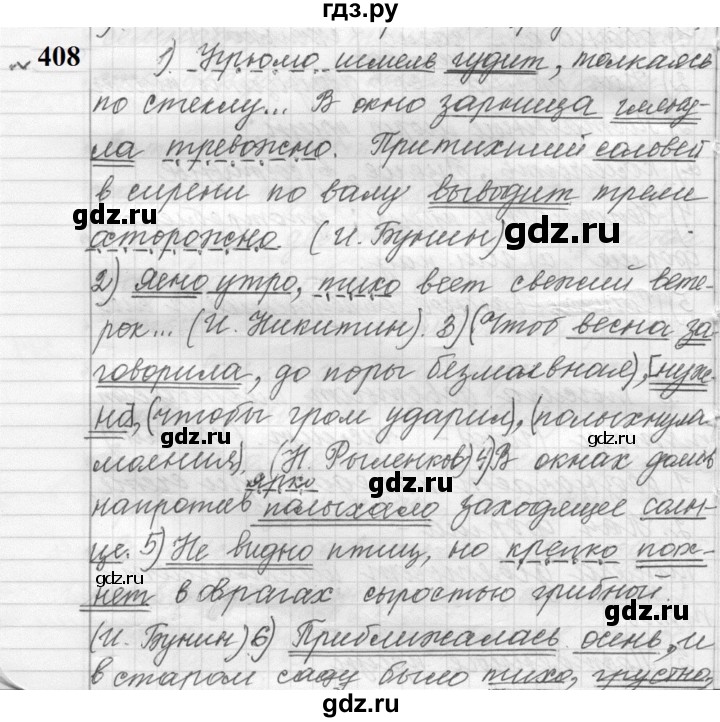 гдз.ру
408 1) Угрюмо шмель гудит, толкаясь
по стеклу... В окно зарница гляну-
ла тревожно. Притихший соловей
в сирени по валу выводит трели
gdz.ru
осторожно. (И. Бунин)
gdz.ru
2) Ясно утро, тихо веет свежий вете-
рок... (И. Никитин). 3) (Чтоб весна за-
gdz.ru
говорила, до поры безмолвная), [нуж-
gdz.ru
но], (чтобы гром ударил), (полыхнула
gdz.ru
молния). (Н. Рыленков) 4) В окнах домов
ярко
gdz.ru
напротив полыхало заходящее солн-
це. 5) Не видно птиц, но крепко пах-
gdz.ru
нет в оврагах сыростью грибной.
gdz.ru
(И. Бунин) 6) Приближалась осень, и
gdz.ru
в старом саду было тихо, грустно,
gdz.ru